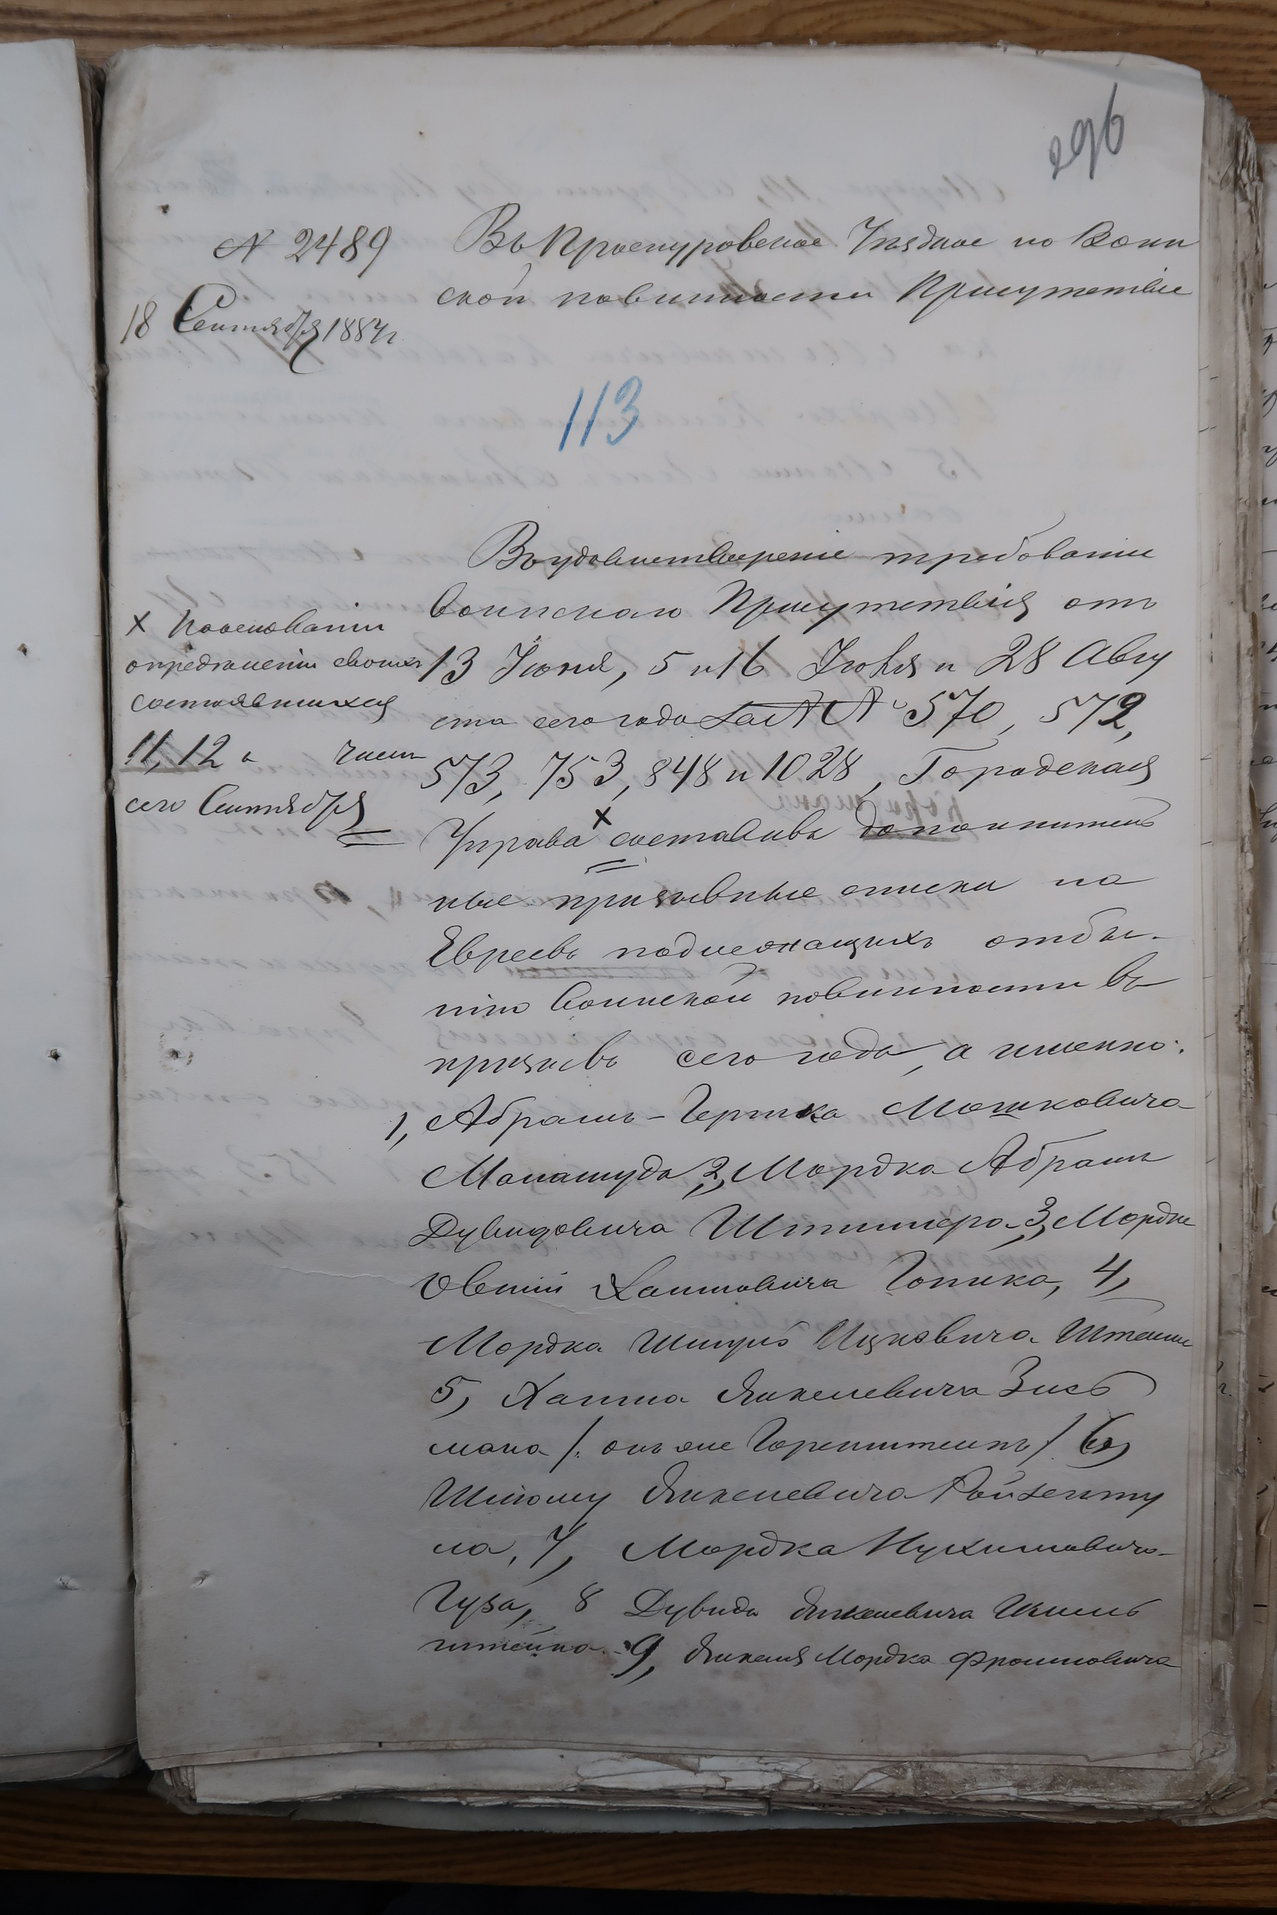 296
№ 2489
18 Сентября 1887 г
Въ Проскуровское Уѣздное по Воин
ской повинности Присутствіе
113
Въ удовлетвореніе требованія
воинскаго Присутствія отъ
13 Іюня, 5 и 16 Іюля и 28 Авгу
ста сего года за №№ 570, 572,
573, 753, 848 и 1028, Городская
Управа × составивъ дополнитель
ные призывные списки на
Евреевъ подлежащихъ отбы-
тію воинской повинности въ
призывъ сего года, а именно:
1, Абрамъ-Гершка Мошковича
2, Мордка Абрамъ
Дувидовича 3, Мордка
Овшій Хаимовича 4,
Мордка Ицковича
5, Хаима Янкелевича Зись
мана /: онъ же Горенштейнъ / 6,
Шлому Янкелевича Ройзенту
ла, 7, Мордка Нухимовича
Гуза, 8 Дувида Янкелевича
штейна 9, Янкеля Мордка Фроимовича
× На основаніи
опредѣленій своихъ
состоявшихся
11, 12 и числ
сего Сентября